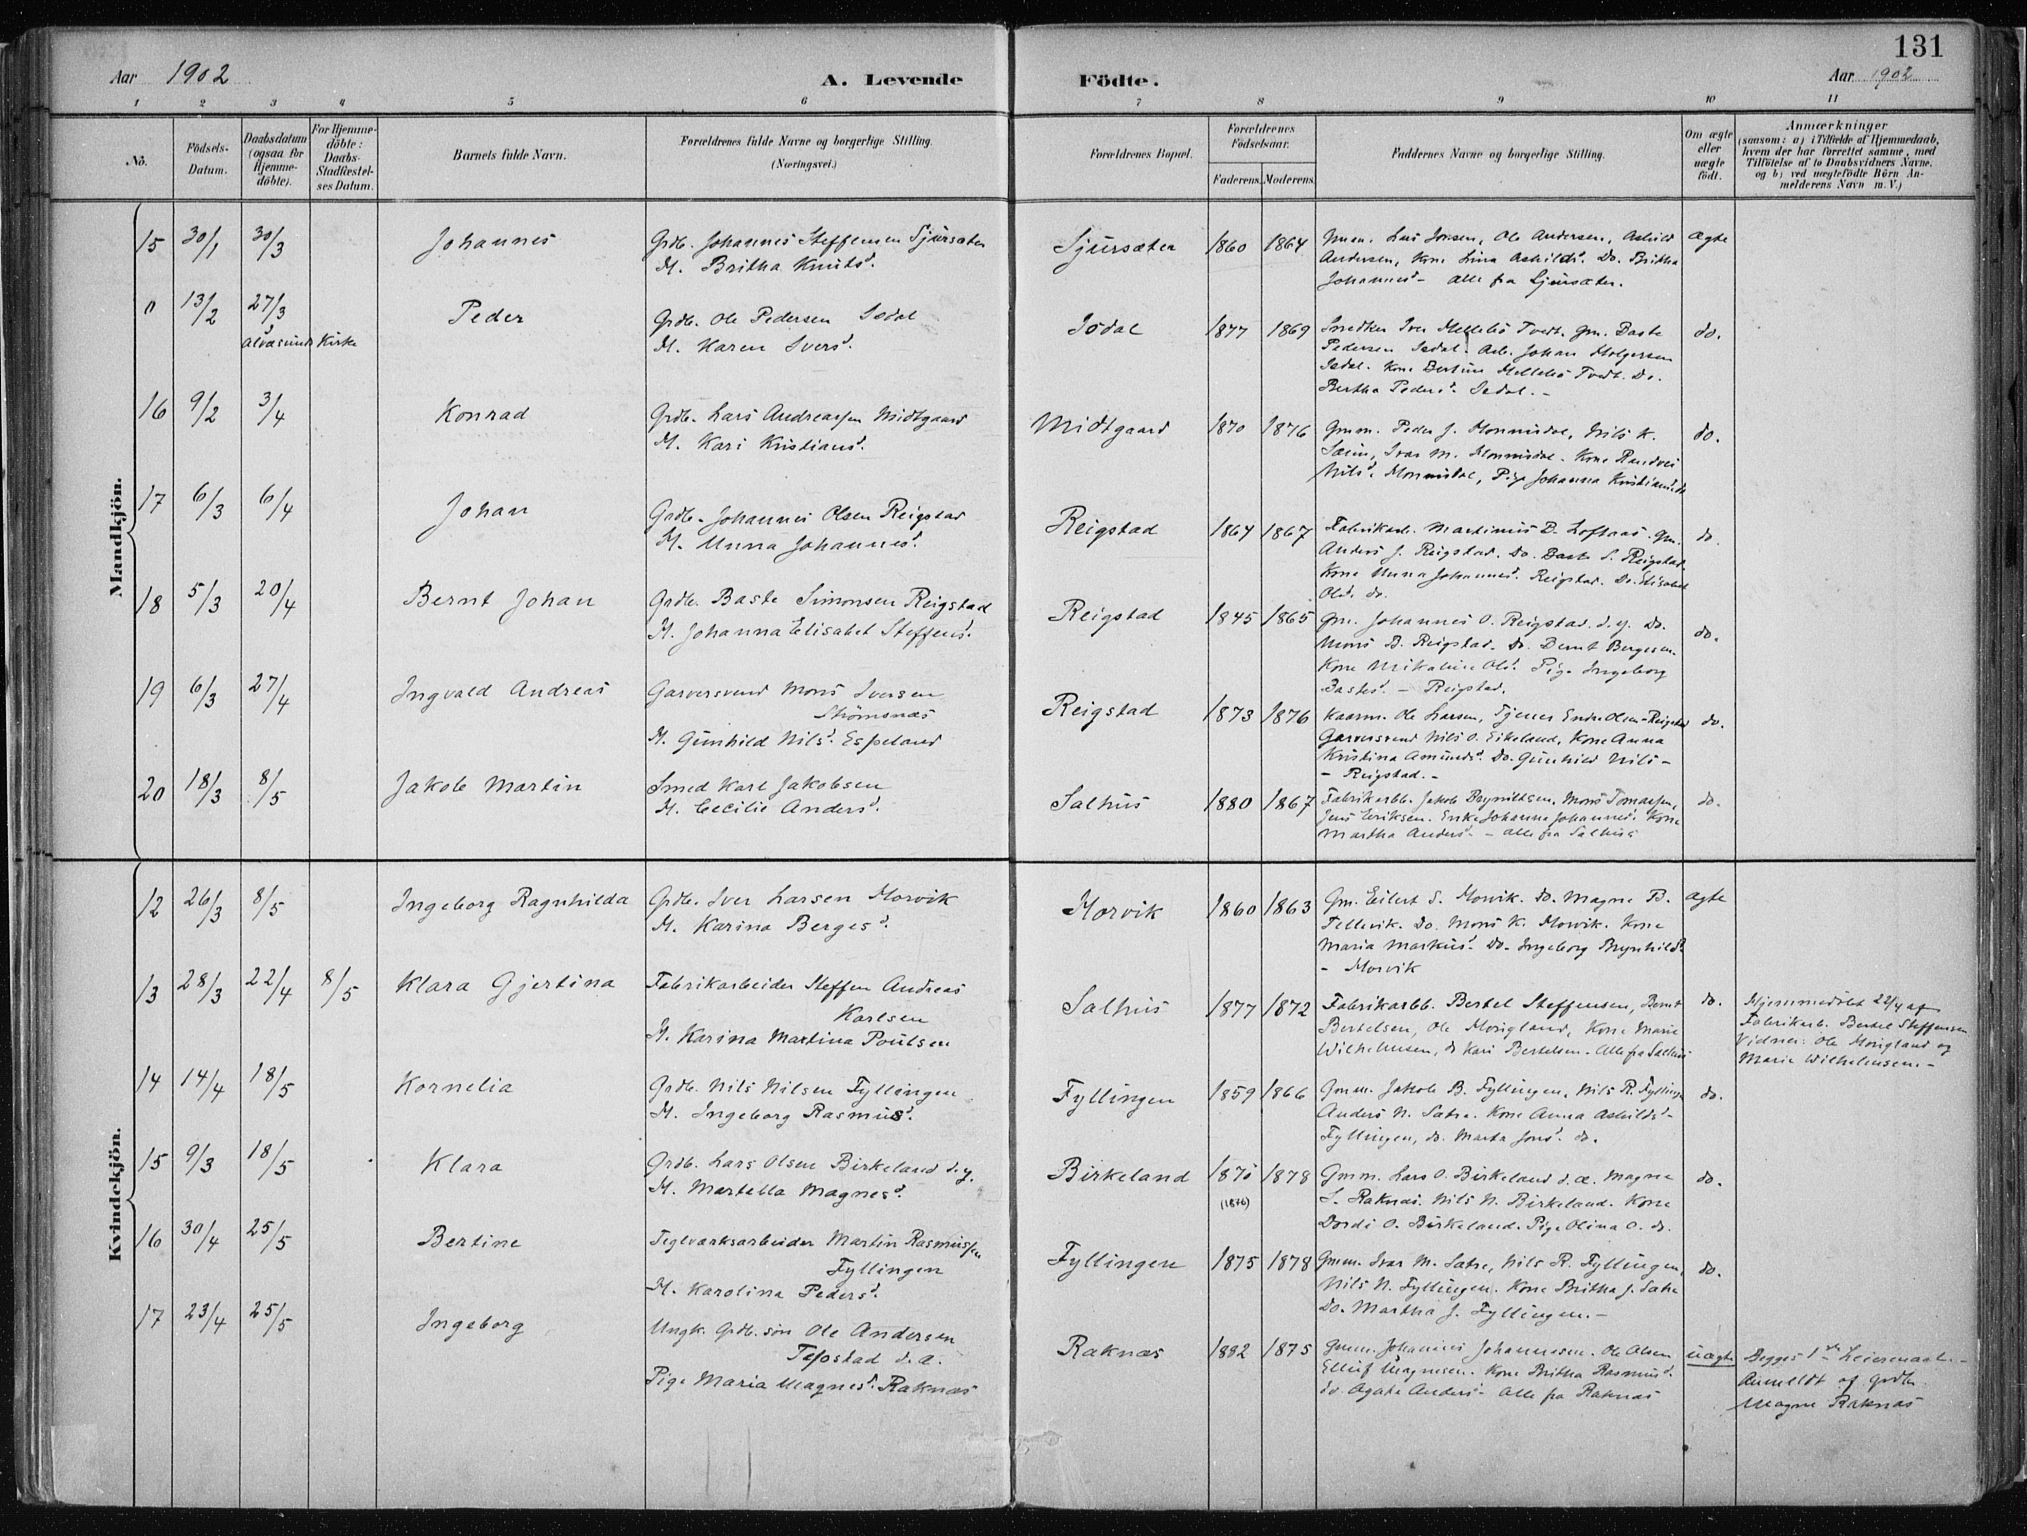 131
Aar 1902
A. Levende Födte.
Aar 1902
1 2 3 4 5 6 7 8 9 10 11
Nö.
Födsels-Datum.
Daabsdatum (ogsaa for Hjemme-döbte).
For Hjemme-döbte: Daabs-Stadfæstel-ses Datum.
Barnets fulde Navn.
Forældrenes fulde Navne og borgerlige Stilling. (Næringsvei.)
Forældrenes Bopæl.
Forældrenes Födselsaar.
Faderens. Moderens.
Faddernes Navne og borgerlige Stilling.
Om ægte eller uægte födt.
Anmærkninger
(saasom: a) i Tilfælde af Hjemmedaab,
hvem der har forrettet samme, med
Tilföielse af to Daabsvidners Navne,
og b) ved uægtefödte Börn An-
melderens Navn m. V.)
Mandkjön.
15 30/1 30/3 Johannes
Grdb. Johannes Steffensen Sjursæter
H. Britha Knuts d.
Sjursæter 1860 1864
Gmm. Lars Jonsen, Ole Andersen, Askild
Andersen, Kone Lina Askilds d. Do. Britha
Johannes d - alle fra Sjursæter.
ægte
0 13/2 27/3 Alvøsund Kirke
Peder
Grdb. Ole Pedersen Isdal
H. Karen Ivers d.
Isdal 1877 1869
Snedker Iver Mellebö Tvedt. Gm. Baste
Pedersen Isdal. Arb. Johan Holgersen
Isdal. Kone Bertine Mellebö Tvedt. Do.
Bertha Peders d. Isdal. -
do.
16 9/2 3/4 Konrad
Grdb. Lars Andreassen Midtgaard
H. Kari Kristians d.
Midtgaard 1870 1876
Gmm. Peder J. Monnisdal, Nils K.
Ivar M. Monnisdal. Kone
Nils d. Monnisdal, Pige Johanna Kristians d.
do.
17 6/3 6/4 Johan
Grdb. Johannes Olsen Reigstad
H. Unna Johannes d.
Reigstad 1864 1867
Fabrikarb. Martinus D. Loftaas. Gm.
Anders J. Reigstad. Do. Baste S. Reigstad.
Kone Unna Johannes d. Reigstad. Do. Lisabet
Ols d. do.
do.
18 5/3 20/4 Bernt Johan
Grdb. Baste Simonsen Reigstad
H. Johanna Elisabet Steffens d.
Reigstad 1845 1865
Gm. Johannes O. Reigstad d. y. Do.
Mons B. Reigstad. Do. Bernt Bergesen.
Kone Mikaline Ols d. Pige Ingeborg
Bastes d. - Reigstad.
do.
19 6/3 27/4 Ingvald Andreas
Garversvend Mons Iversen
Strömsnæs
H. Gunhild Nils d. Espeland
Reigstad 1873 1876
Kaarm. Ole Larsen, Tjener Endre Olsen - Reigstad
Garversvend Nils O. Eikeland, Kone Anna
Kristina Amunds d. Do. Gunhild Nils -
- Reigstad. -
do.
20 18/3 8/5 Jakob Martin
Smed Karl Jakobsen
H. Cecilie Anders d.
Salhus 1880 1867
Fabrikarbb. Jakob Brynildsen, Mons Tomassen,
Jens Eriksen. Enke Johanna Johannes d. Kone
Martha Anders d. - alle fra Salhus
do.
Kvindekjön.
12 26/3 8/5 Ingeborg Ragnhilda
Grdb. Iver Larsen Morvik
H. Karina Berges d.
Morvik 1860 1863
Gm. Eilert S. Morvik. Do. Magne B.
Tellevik. Do. Mons K. Morvik. Kone
Maria Markus d. Do. Ingeborg Brynhilds d.
- Morvik
ægte
13 28/3 22/4 8/5 Klara Gjertina
Fabrikarbeider Steffen Andreas
Karlsen
H. Karina Martina Poulsen
Salhus 1877 1872
Fabrikarbb. Bertel Steffensen, Bernt
Bertelsen, Ole Morigland, Kone Marie
Wilhelmsen, do Kari Bertelsen. Alle fra Salhus
do.
Hjemmedöbt 22/4 af
Fabrikarb. Bertel Steffensen
Vidner: Ole Morigland og
Marie Wilhelmsen. -
14 14/4 18/5 Kornelia
Grdb. Nils Nilsen Fyllingen
H. Ingeborg Rasmus d.
Fyllingen 1859 1866
Gmm. Jakob B. Fyllingen, Nils R. Fyllingen
Anders N. Sætre. Kone Anna Askilds d -
Fyllingen, do. Marta Jons d. do.
do.
15 9/3 18/5 Klara
Grdb. Lars Olsen Birkeland d. y.
H. Martella Magnes d.
Birkeland 1870 (1876) 1878
Gmm. Lars O. Birkeland d. æ. Magne
L. Raknæs. Nils N. Birkeland. Kone
Dordi O. Birkeland. Pige Olina O. do.
do.
16 30/4 25/5 Bertine
Teglværksarbeider Martin Rasmussen
Fyllingen
H. Karolina Peders d.
Fyllingen 1875 1878
Gmm. Ivar M. Sætre, Nils R. Fyllingen,
Nils N. Fyllingen. Kone Britha J. Sætre
Do. Martha J. Fyllingen. -
do.
17 23/4 25/5 Ingeborg
Ungk. Grdb. søn Ole Andersen
Tepstad d. æ.
Pige Maria Magnes d. Raknæs
Raknæs 1882 1875
Gmm. Johannes Johannessen. Ole Olsen
Ellif Magnesen. Kone Britha Rasmus d.
do. Agate Anders d - alle fra Raknæs
uægte
Begges 1ste Leiermaal. -
Anmeldt af Grdb.
Magne Raknæs